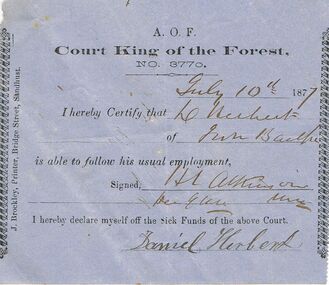 A. O. F.
Court King of the Forest,
NO. 3770.
July 10th 1877
I hereby Certify that D Herbert
of
is able to follow his usual employment,
Signed, H L Atkinson
I hereby declare myself off the Sick Funds of the above Court.
Daniel Herbert
J. Brockley, Printer, Bridge Street, Sandhurst.